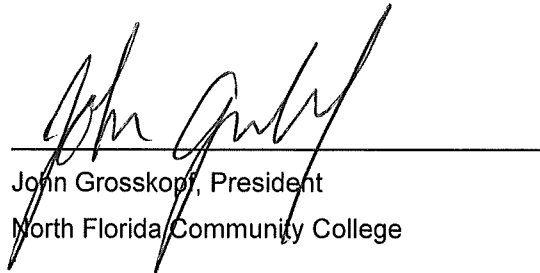 John Grosskopf
John Grosskopf, President
North Florida Community College